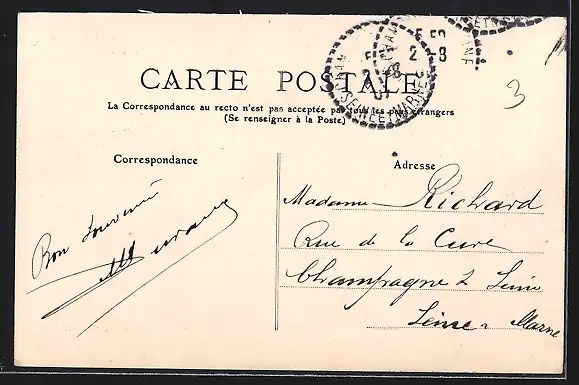 CARTE POSTALE
La Correspondance au recto n'est pas acceptée par tous les pays étrangers
(Se renseigner à la Poste)
3
Correspondance
Bon Souvenir
Adresse
Madame Richard
Rue de la Cure
Champagne s Seine
Seine & Marne
SEINE ET MARNE
2 - 8